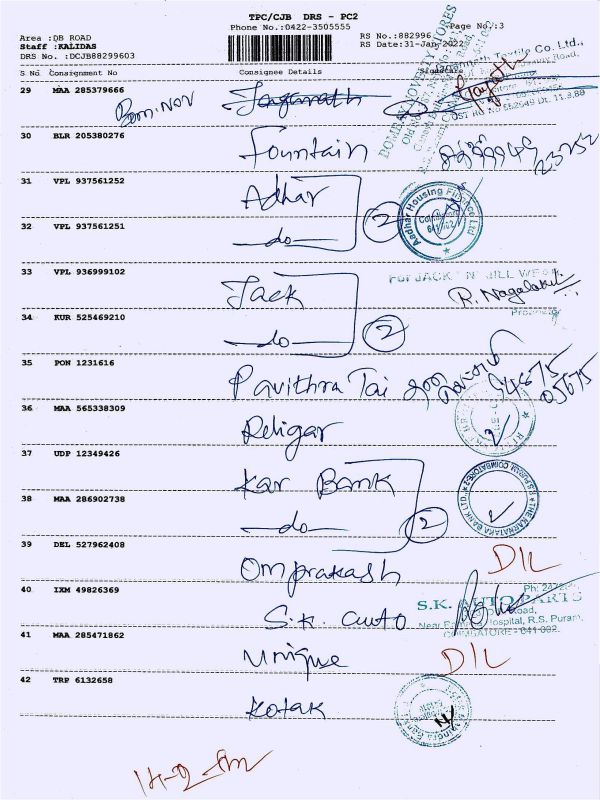 TPC/CJB DRS - PC2
Phone No.:0422-3505555
Page No.:3
Area :DB ROAD
RS No.:882996
Staff :KALIDAS
RS Date:31-Jan-2022
DRS No. :DCJB88299603
S No Consignment No Consignee Details Signature
29 MAA 285379666
30 BLR 205380276 Fountain
31 VPL 937561252 Adhar
32 VPL 937561251 —do— 2
Aadhar Housing Finance Ltd
33 VPL 936999102 Jack
R. Nagalakshmi
34 KUR 525469210 —do— 2
35 PON 1231616 Pavithra Tai
36 MAA 565338309 Religar
37 UDP 12349426 Kar Bank
THE KARNATAKA BANK LTD. R.S.PURAM COIMBATORE-2
38 MAA 286902738 —do— 2
39 DEL 527962408 Omprakash DIL
40 IXM 49826369 S.K. auto
S.K. AUTO PARTS
Hospital, R.S. Puram,
COIMBATORE - 641 002.
41 MAA 285471862 Unique DIL
42 TRP 6132658 Kotak